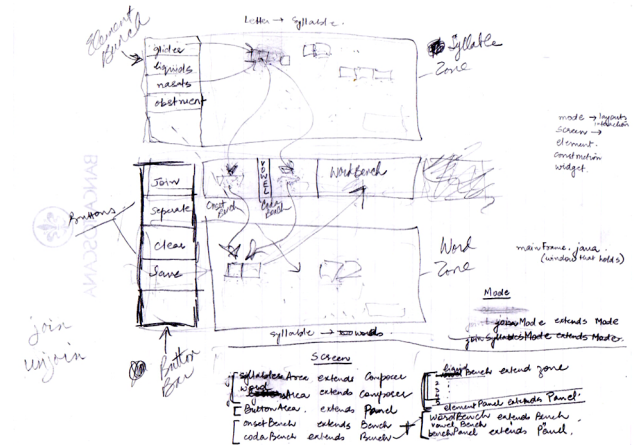 Letter → Syllable.
Element
Bench
glides
liquids
nasals
obstruent
Syllable
Zone
mode → layouts
interaction
screen →
element.
construction
widget.
Join
Seperate
Clear
Save
Buttons
Onset
Bench
VOWEL
Coda
Bench
WordBench
Word
Zone
mainFrame.java
(window that holds)
BANCA TOSCANA
join
unjoin
Button
Bar
syllable → words
Mode
joinMode extends Mode
joinSyllablesMode extends Mode.
Screen
syllableArea extends Composer
word
Area extends Composer
ButtonArea. extends Panel
onsetBench extends Bench
codaBench extends Bench
Bench extend zone
elementPanel extends Panel.
wordBench extends Bench
vowelBench
benchPanel extends Panel.